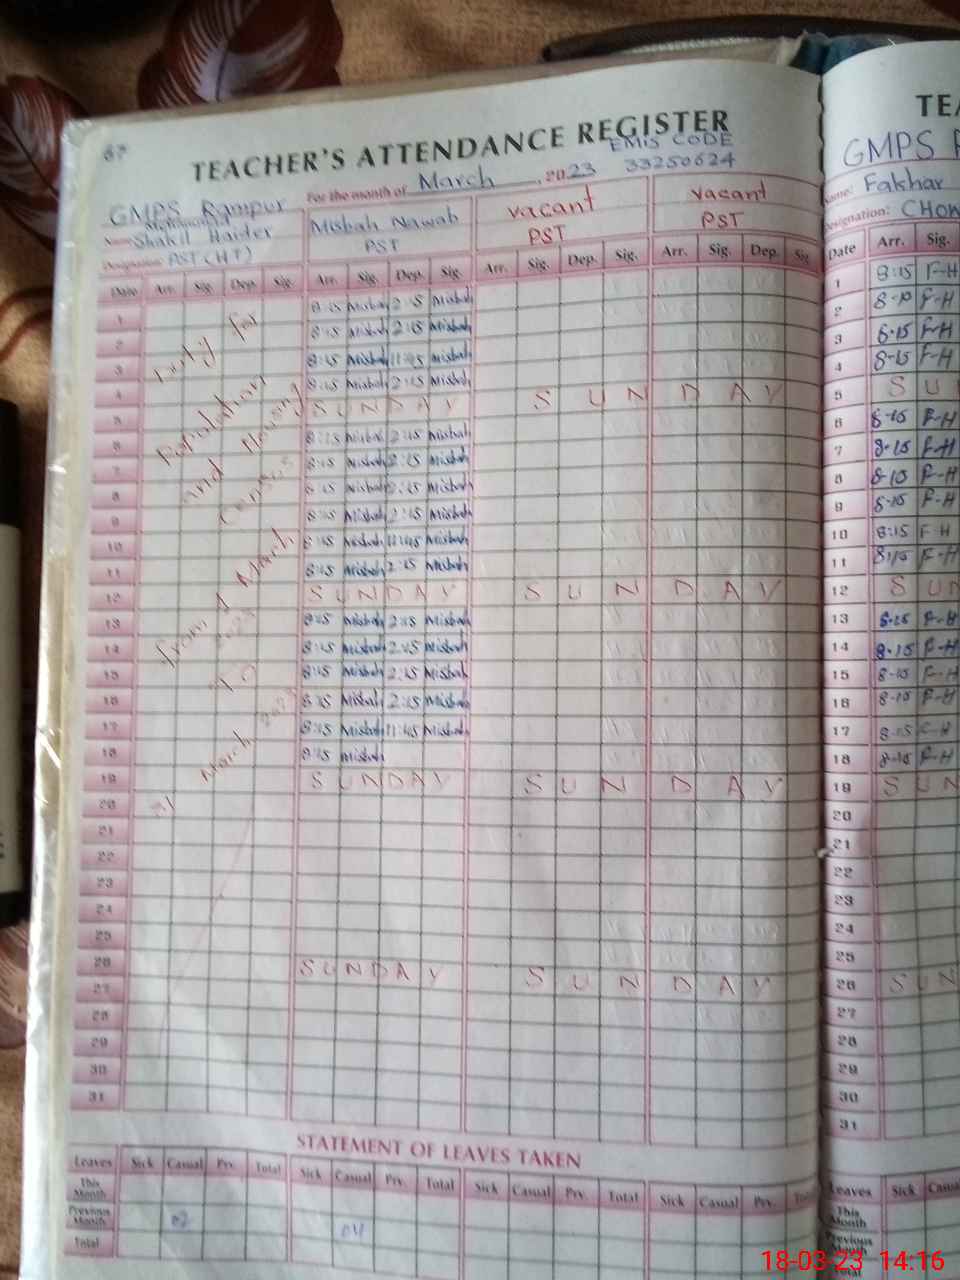 67
TEACHER'S ATTENDANCE REGISTER
EMIS CODE
33250624
For the month of March, 2023
GMPS Rampur
Name: Shakil Haider
Designation: PST (HT)
Misbah Nawab
PST
vacant
PST
vacant
PST
Date Arr. Sig. Dep. Sig. Arr. Sig. Dep. Sig. Arr. Sig. Dep. Sig. Arr. Sig. Dep. Sig.
1 8:15 Misbah 2:15 Misbah
2 8:15 Misbah 2:15 Misbah
3 8:15 Misbah 11:45 Misbah
4 8:15 Misbah 2:15 Misbah
5 SUNDAY SUNDAY
6 8:15 Misbah 2:15 Misbah
7 8:15 Misbah 2:15 Misbah
8 8:15 Misbah 2:15 Misbah
9 8:15 Misbah 2:15 Misbah
10 8:15 Misbah 11:45 Misbah
11 8:15 Misbah 2:15 Misbah
12 SUNDAY SUNDAY
13 8:15 Misbah 2:15 Misbah
14 8:15 Misbah 2:15 Misbah
15 8:15 Misbah 2:15 Misbah
16 8:15 Misbah 2:15 Misbah
17 8:15 Misbah 11:45 Misbah
18 8:15 Misbah
19 SUNDAY SUNDAY
20
21
22
23
24
25
26 SUNDAY SUNDAY
27
28
29
30
31
Duty for
Population
and Housing
Census
from 1 March
2023
TO
31 March 2023
STATEMENT OF LEAVES TAKEN
Leaves Sick Casual Prv. Total Sick Casual Prv. Total Sick Casual Prv. Total Sick Casual Prv. Total
This Month
Previous Month 02 04
Total
TEA
GMPS R
Name: Fakhar
Designation: CHOW
Date Arr. Sig.
1 8:15 F-H
2 8-10 F-H
3 8-15 F-H
4 8-15 F-H
5 SU
6 8-15 F-H
7 8-15 F-H
8 8-10 F-H
9 8-15 F-H
10 8:15 F-H
11 8:15 F-H
12 SU
13 8-15 F-H
14 8-15 F-H
15 8-10 F-H
16 8-10 F-H
17 8-15 F-H
18 8-10 F-H
19 SUN
20
21
22
23
24
25
26 SUN
27
28
29
30
31
Leaves Sick Casua
This Month
Previous Month
Total
18-03-23 14:16